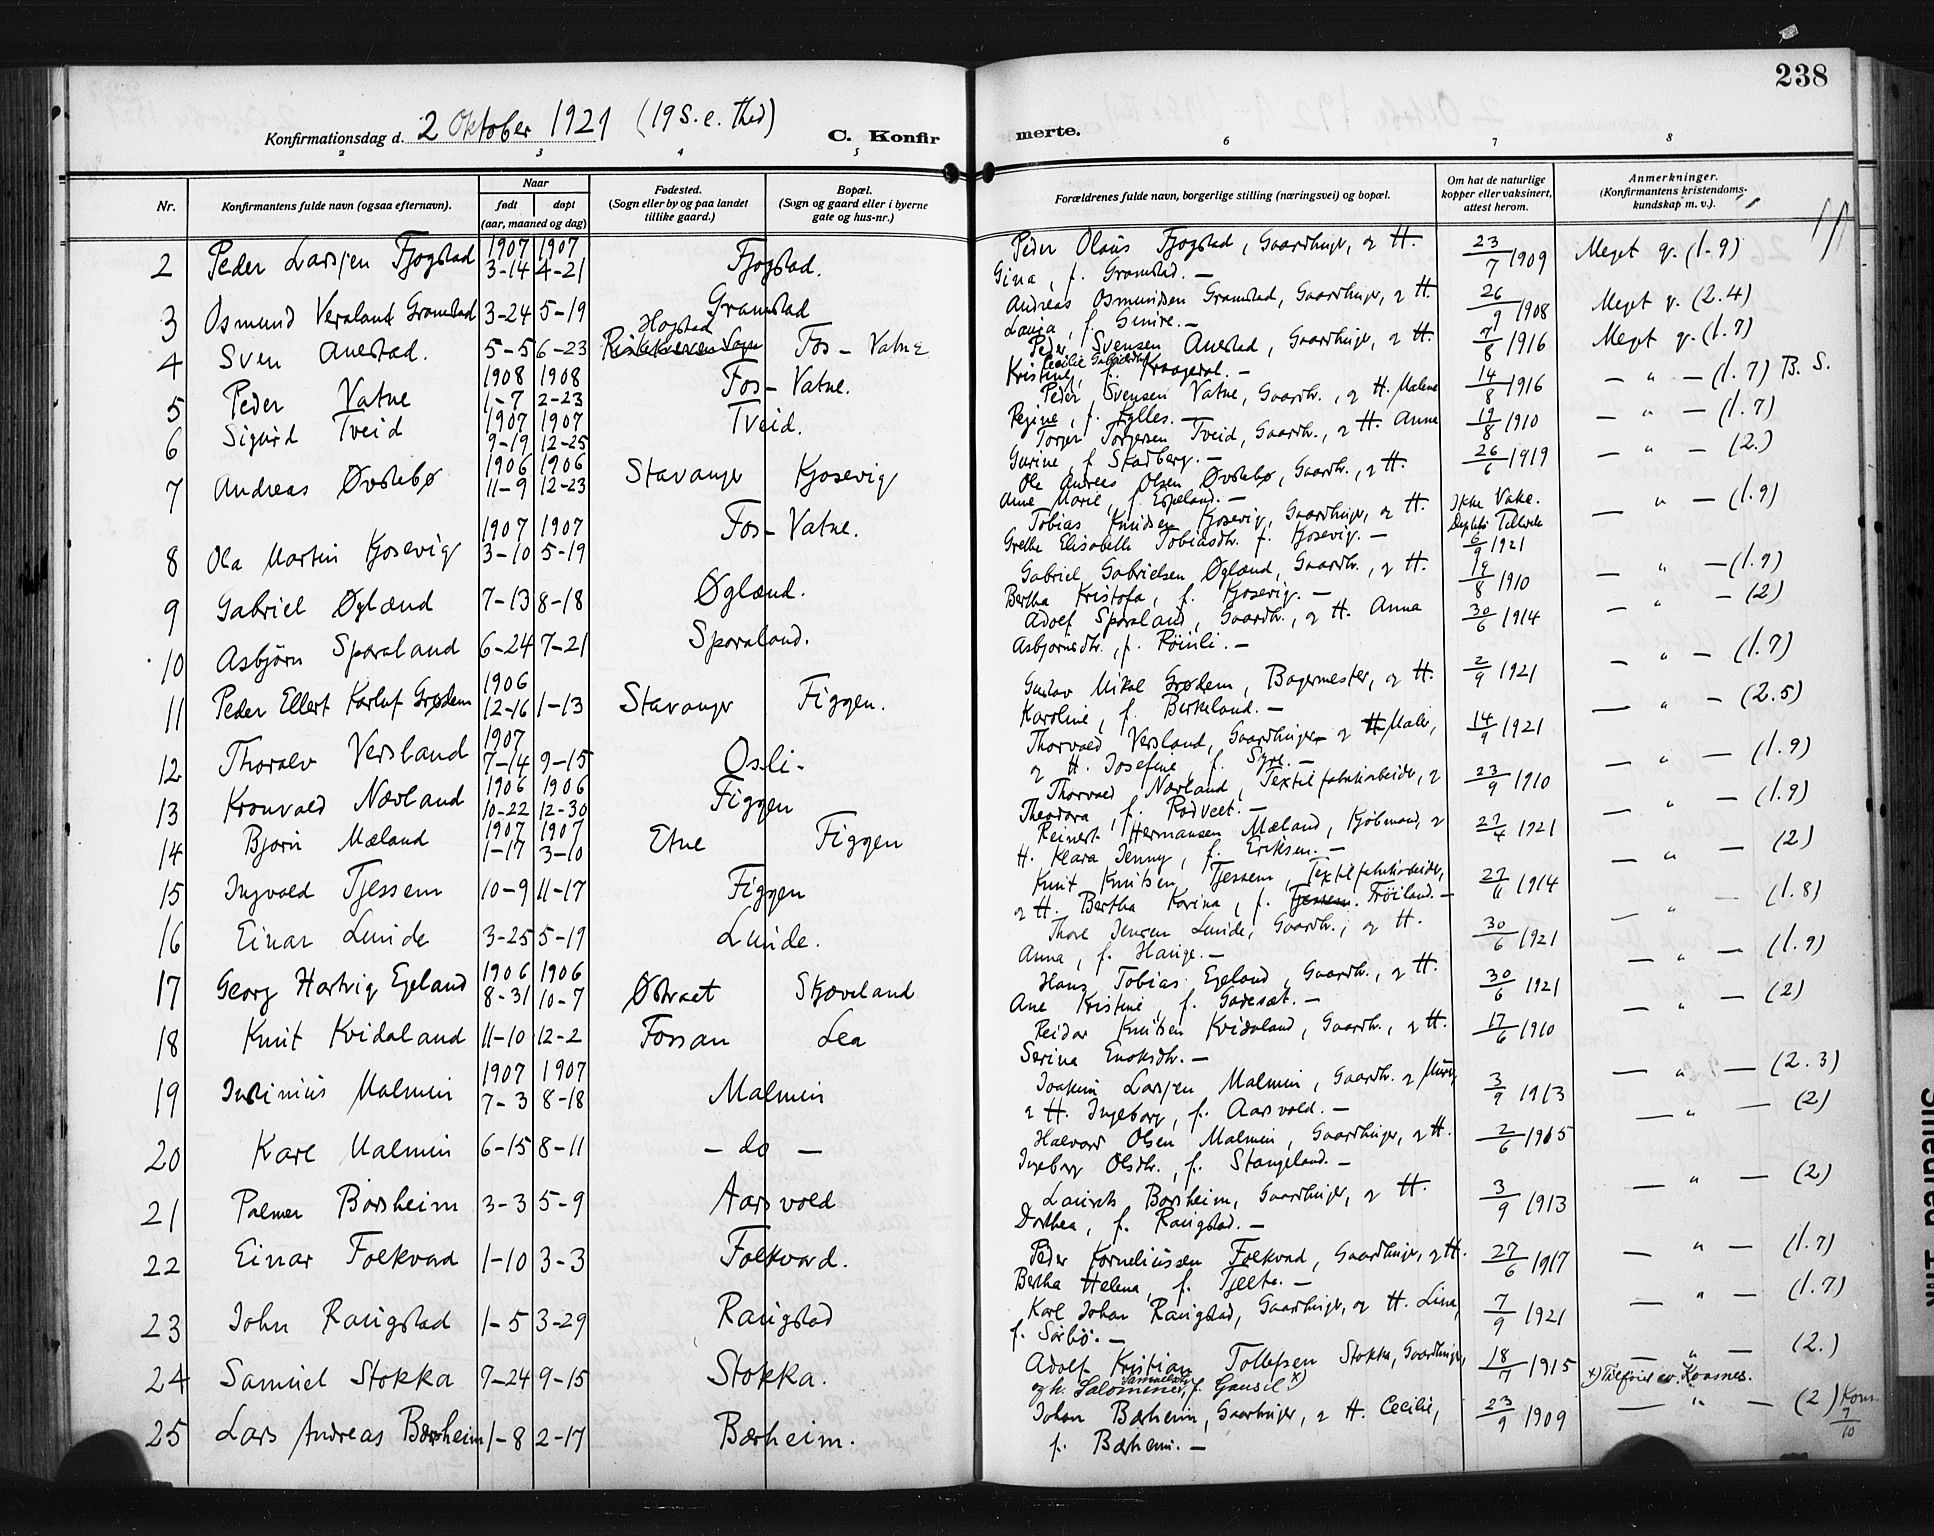 238
Konfirmationsdag d. 2 Oktober 1921 (19 S. e. Thd)
C. Konfirmerte.
2 3 4 5 6 7 8
Nr.
Konfirmantens fulde navn (ogsaa efternavn).
Naar
født
døpt
(aar, maaned og dag)
Fødested.
(Sogn eller by og paa landet
tillike gaard.)
Bopæl.
(Sogn og gaard eller i byerne
gate og hus-nr.)
Forældrenes fulde navn, borgerlige stilling (næringsvei) og bopæl.
Om hat de naturlige
kopper eller vaksinert,
attest herom.
Anmerkninger.
(Konfirmantens kristendoms-
kundskap m. v.).
2 Peder Larsen Fjogstad 1907 3-14 1907 4-21 Fjogstad.
Peder Olaus Fjogstad, Gaardbruger, og H.
Gina, f. Gramstad. — 23/7 1909 Meget g. (1.9)
3 Osmund Versland Gramstad 3-24 5-19 Gramstad
Andreas Osmundsen Gramstad, Gaardbruger, og H.
Laura, f. Gimre. — 26/9 1908 Meget g. (2.4)
4 Sven Auestad. 5-5 6-23 Hogstad Fos-Vatne
Peder Svensen Auestad, Gaardbruger, og H.
Kristine, f. Kraagedal. — 7/8 1916 Meget g. (1.7)
5 Peder Vatne 1908 1-7 1908 2-23 Fos-Vatne.
Peder Svensen Vatne, Gaardbr., og H. Malene
Regine, f. Fylles. — 14/8 1916 — " — (1.7) B. S.
6 Sigurd Tveid 1907 9-19 1907 12-25 Tveid.
Torger Torgersen Tveid, Gaardbr., og H. Anna
Gurine, f. Stadberg. — 19/8 1910 — " — (1.7)
7 Andreas Øvstebø 1906 11-9 1906 12-23 Stavanger Kjosevig
Ole Andreas Olsen Øvstebø, Gaardbr., og H.
Ane Marie, f. Espeland. — 26/6 1919 — " — (2.)
8 Ola Martin Kjosevig 1907 3-10 1907 5-19 Fos-Vatne.
Tobias Knudsen Kjosevig, Gaardbruger, og H.
Grethe Elisabeth Tobiasdtr. f. Kjosevig. — Ikke Vake. 6/9 1921 — " — (1.9)
9 Gabriel Øglænd 7-13 8-18 Øglænd.
Gabriel Gabrielsen Øglænd, Gaardbr., og H.
Bertha Kristofa, f. Kjosevig. — 19/8 1910 — " — (1.9)
10 Asbjörn Sporaland 6-24 7-21 Sporaland.
Adolf Sporaland, Gaardbr., og H. Anna
Asbjornsdtr., f. Röinli. — 30/6 1914 — " — (2)
11 Peder Ellert Karluf Grødem 1906 12-16 1-13 Stavanger Figgen.
Gustav Mikal Grødem, Bagermester, og H.
Karoline, f. Berkeland. — 2/9 1921 — " — (1.7)
12 Thoralv Versland 1907 7-14 9-15 Osli.
Thorvald Versland, Gaardbruger og Maler,
og H. Josefine, f. — 14/9 1921 — " — (2.5)
13 Kronvald Nævland 1906 10-22 1906 12-30 Figgen
Thorvald Nævland, Textilfabrikarbeider, og
Theodora, f. Rødveet. — 23/9 1910 — " — (1.9)
14 Bjorn Mæland 1907 1-17 1907 3-10 Etne Figgen
Reinert Hermansen Mæland, Kjøbmand, og
H. Klara Jenny, f. Eriksen. — 27/4 1921 — " — (1.9)
15 Ingvald Tjessem 10-9 11-17 Figgen
Knut Knutsen Tjessem, Textilfabrikarbeider,
og H. Bertha Karina, f. Tjessem. Fröiland. — 27/6 1914 — " — (2)
16 Einar Lunde 3-25 5-19 Lunde.
Thore Jensen Lunde, Gaardbr., og H.
Anna, f. Hauge. — 30/6 1921 — " — (1.8)
17 Georg Hartvig Egeland 1906 8-31 1906 10-7 Østraet Skjæveland
Hans Tobias Egeland, Gaardbr., og H.
Ane Kristine, f. Godeset. — 30/6 1921 — " — (1.9)
18 Knut Kvidaland 11-10 12-2 Fossan Lea
Reidar Knutsen Kvidaland, Gaardbr., og H.
Serina Enoksdtr. — 17/6 1910 — " — (2)
19 Malmin 1907 7-3 1907 8-18 Malmin
Joakim Larsen Malmin, Gaardbr. og Murer,
og H. Ingeborg, f. Aarsvold. — 3/9 1913 — " — (2.3)
20 Karl Malmin 6-15 8-11 — do —
Halvard Olsen Malmin, Gaardbruger, og H.
Ingeborg Olsdtr., f. Stangeland. — 2/6 1915 — " — (2)
21 Palmer Borsheim 3-3 5-9 Aarsvold
Laurits Borsheim, Gaardbruger, og H.
Dorthea, f. Raugstad. — 3/9 1913 — " — (2)
22 Einar Folkvord 1-10 3-3 Folkvord.
Peder Korneliussen Folkvord, Gaardbruger, og H.
Bertha Helena, f. Tjelta. — 27/6 1917 — " — (1.7)
23 John Raugstad 1-5 3-29 Raugstad
Karl Johan Raugstad, Gaardbruger, og H. Lina,
f. Sørbö. — 7/9 1921 — " — (1.7)
24 Samuel Stokka 7-24 9-15 Stokka.
Adolf Kristian Tollefsen Stokka, Gaardbruger,
og h. Salomine Samuelsdtr, f. Gausel x) 18/7 1915 — " — (2.)
x) Tilføiet av Kaasnes.
25 Lars Andreas Bærheim 1-8 2-17 Bærheim.
Johan Bærheim, Gaardbruger, og H. Cecilie,
f. Bærheim. — 23/9 1909 — " — (2) Kom. 7/10